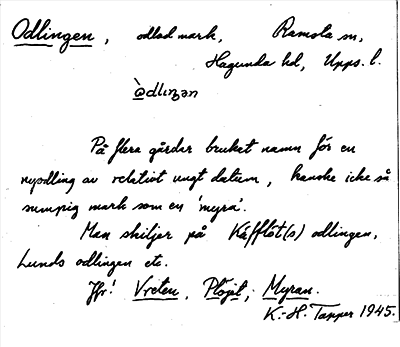 Odlingen, odlad mark, Ramsta sn,
Hagunda hd, Upps. l.
På flera gårdar brukat namn för en
nyodling av relativt ungt datum, kanske icke så
sumpig mark som en 'myra'.
Man skiljer på Käfflöt(s) odlingen,
Lunds odlingen etc.
Jfr! Vreten, Plöjit, Myran.
K.-H. Tapper 1945.